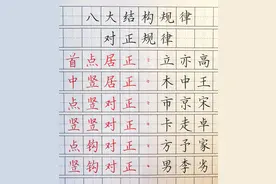 八大结构规律
对正规律
首点居正·立亦高
中竖居正·木中王
点竖对正·市京宋
竖竖对正·卡走卓
点钩对正·方予家
竖钩对正·男李劣